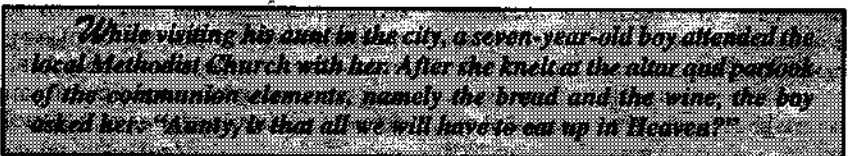 While visiting his aunt in the city, a seven-year-old boy attended the
local Methodist Church with her. After she knelt at the altar and partook
of the communion elements, namely the bread and the wine, the boy
asked her: "Aunty, is that all we will have to eat up in Heaven?"